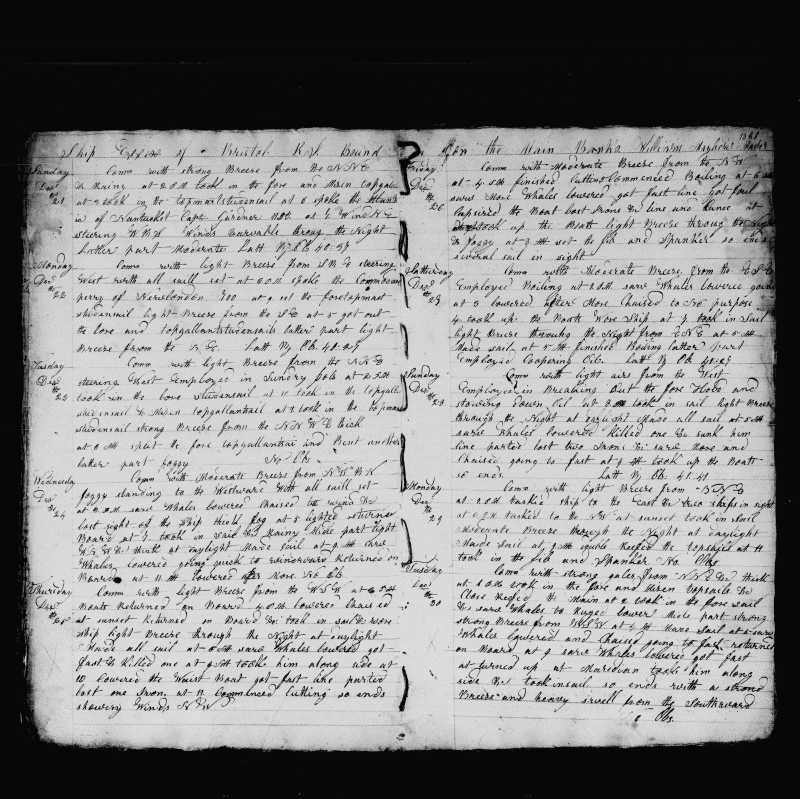 Ship of Bristol R I Bound
Sunday Coms with strong Breeze from the NNE
Decr & Raining at 2 PM took in the fore and Main topgalla
21 at 2 took in the topmaststudensail at 6 spoke the
of Nantucket Capt Gardner at 7 Wind NE
steering W B N Winds throug the Night
Latter part Moderate Latt By Ob 40.47
Monday Coms with light Breeze from SNE steering
Decr West with all saill set at 2 PM spoke the Commodore
22 perry of Newlondon 300 at 9 set the foretopmast
studensail light Breeze from the SE at 5 got out
the love and topgallantstudensails latter part light
Breeze from the N E. Latt By Ob 40.49
Tusday Coms with light Breeze from the NNE
Decr steering West Employed in Sundry Jobs at 2 PM
23 took in the lore studensail at 11 took in the topgall
studensail & Main topgallantsail at 2 took in the topmas
studensail strong Breeze from the N N W & thick
at 6 AM split the fore topgallantsail and Bent another
latter part foggy No Obs
Wednesday Coms with Moderate Breeze from N W B N
Decr foggy standing to the Westward With all saill set
24 at 2 PM saw Whales lowered Chaised to &
lost sight of the Ship thick fog at 5 lighted
Board at 7 took in Sail & Rainy Mide part light
W N W & thick at daylight Made Sail at 9 AM saw
Whales lowered going quick to windward Returned on
Board at 11 AM lowered after More No Obs
Thursday Coms with light Breeze from the W S W at 2 PM
Decr Boats Returned on Board 4 PM lowered Chaised
25 at sunset Returned on Board & took in sail & wore
ship light Breeze through the Night at daylight
Made all sail at 8 AM saw Whales lowered got
fast & Killed one at 9 AM took him along side at
10 lowered the Waist Boat got fast line parted
lost one Iron at 11 Commenced Cutting so ends
showery Winds N W
on the Main Banks William Mayhew Master
Friday Coms with Moderate Breeze from the N W
Decr at 4 PM finished Cutting Commenced Boiling at 6 AM
26 saw More Whales lowered got fast line got foul
Capsized the Boat lost Irons & line and lance at
took up the Boats light Breeze throug the Night
& foggy at 3 AM set the Jib and Spanker so ends
several sail in sight
Satterday Coms with Moderate Breeze from the E S E
Decr Employed Boiling at 1 PM saw Whales lowered going
27 at 3 lowered after More Chaised to No purpose
4 took up the Boats Wore Ship at 7 took in Sail
light Breeze through the Night from E N E at 5 AM
Made sail at 5 AM finished Boiling latter part
Employed Coopering Oile. Latt By Ob 40.47
Sunday Coms with light airs from the West
Decr Employed in Breaking Out the fore Hole and
28 stowing down Oil at 2 PM took in sail light Breeze
through the Night at daylight Made all sail at 5 AM
saw Whales lowered Killed one & sunk him
line parted lost two Irons & saw More and
Chaised going to fast at 9 AM took up the Boats
so ends. Latt By Ob 41.41
Monday Coms with light Breeze from NNE
Decr at 2 PM tacked ship to the East & two ships in sight
29 at 4 PM tacked to the at sunset took in Sail
Moderate Breeze through the Night at daylight
Made Sail at 9 AM double Reefed the topsails at 11
took in the Jib and Spanker No Obs
Tusday Coms with strong gales from NNE & thick
Decr at 1 PM took in the fore and Mizen topsails &
30 Close Reefed the Main at 2 took in the fore sail
& saw Whales to Ruged lower Mide part strong
strong Breeze from WSW at 7 AM Made sail at 8 saw
Whales lowered and Chaised going to fast returned
on Board at 9 saw Whales lowered got fast
at turned up at Maridian took him along
side & took in sail so ends with a strong
Breeze and heavy swell from the Southward
Obs.